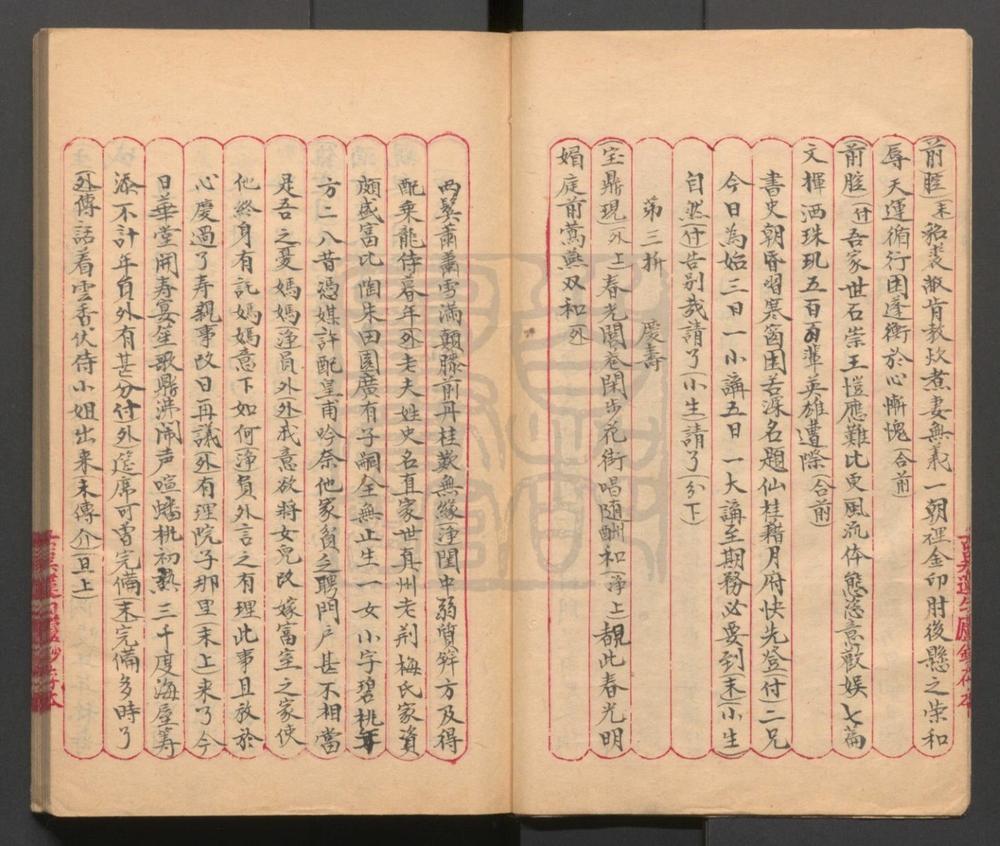 前腔(末)貂裘敝肯教炊煮妻無義一朝裡金印肘後懸之柴和
辱天運循行困蘧衡於心慚愧(合前)
前腔(付)吾家世石崇王愷應難比東風流体態恣意歡娱七篇
文揮洒珠玑五百輩英雄遭際(合前)
書史朝昏習寒窗困苦深名題仙桂籍月府快先登(付)二兄
今日為始三日一小講五日一大講至期務必要到(末)小生
自然(付)告别哉請了(小生)請了(仝下)
第三折 慶壽
宝鼎現(外上)春光閬苑閑步花街唱随酬和(净上)覩此春光明
媚庭前鶯燕双和(外)
两鬓蕭蕭雪滿顛膝前丹桂歎無緣(净)閨中弱質笄方及得
配乗龍侍暮年(外)老夫姓史名直家世真州老荆梅氏家資
頗盛富比陶朱田園廣有子嗣全無止生一女小字碧桃年
方二八昔憑媒許配皇甫吟奈他家貧乏聘門戶甚不相當
是吾之憂媽媽(净)員外(外)我意欲將女兒改嫁富室之家使
他終身有託媽媽意下如何(净)員外言之有理此事且放於
心慶過了寿親事改日再議(外)有理院子那里(末上)来了今
日華堂開寿宴笙歌鼎沸闹声喧蟠桃初熟三千度海屋籌
添不計年員外有甚分付(外)筵席可曽完備(末)完備多時了
(外)傳話着雲香伏侍小姐出来(末傳介)(旦上)